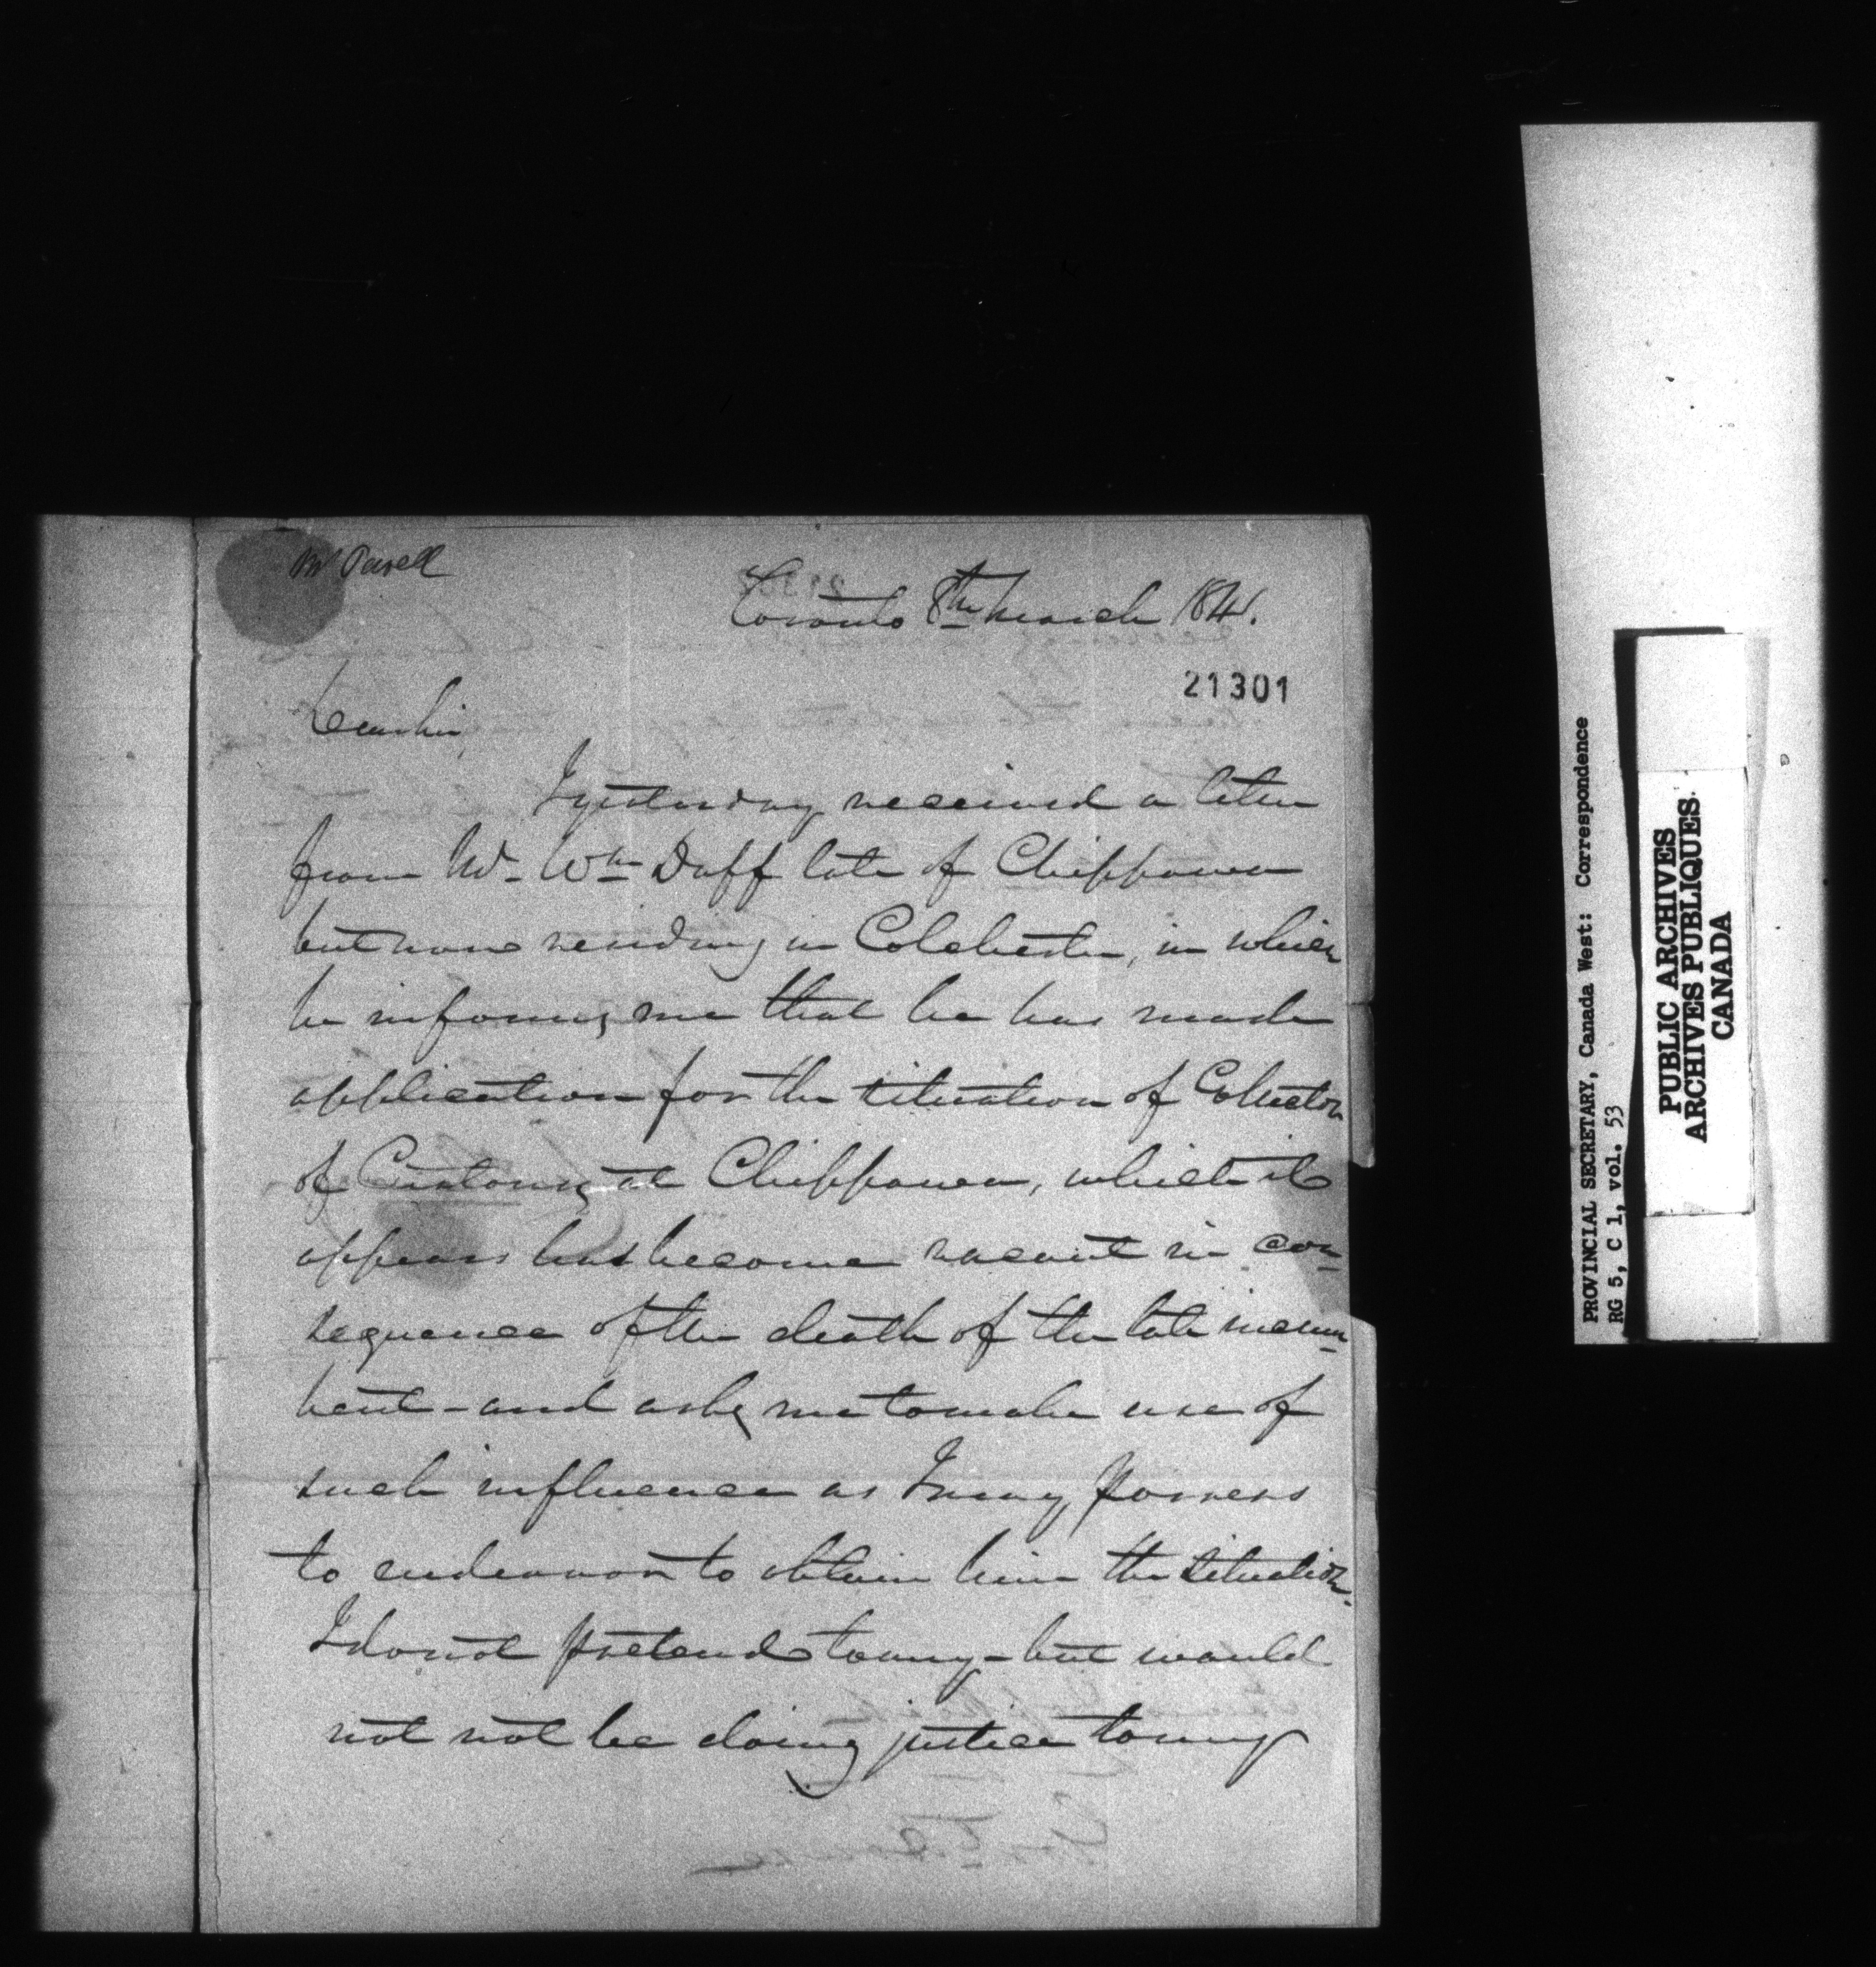 Mr Powell
Toronto 8th March 1841.
21301
Dear Sir
I yesterday received a letter
from Mr. Wm Duff late of Chippawa
but now residing in Colchester, in which
he informs me that he has made
application for the situation of Collector
of Customs at Chippawa, which it
appears has become vacant in con-
sequence of the death of the late incum-
bent - and asks me to make use of
such influence as I may possess
to endeavor to obtain him the situation.
I do not pretend to any - but would
not not be doing justice to my
PROVINCIAL SECRETARY, Canada West: Correspondence
RG 5, C 1, vol. 53
PUBLIC ARCHIVES
ARCHIVES PUBLIQUES
CANADA